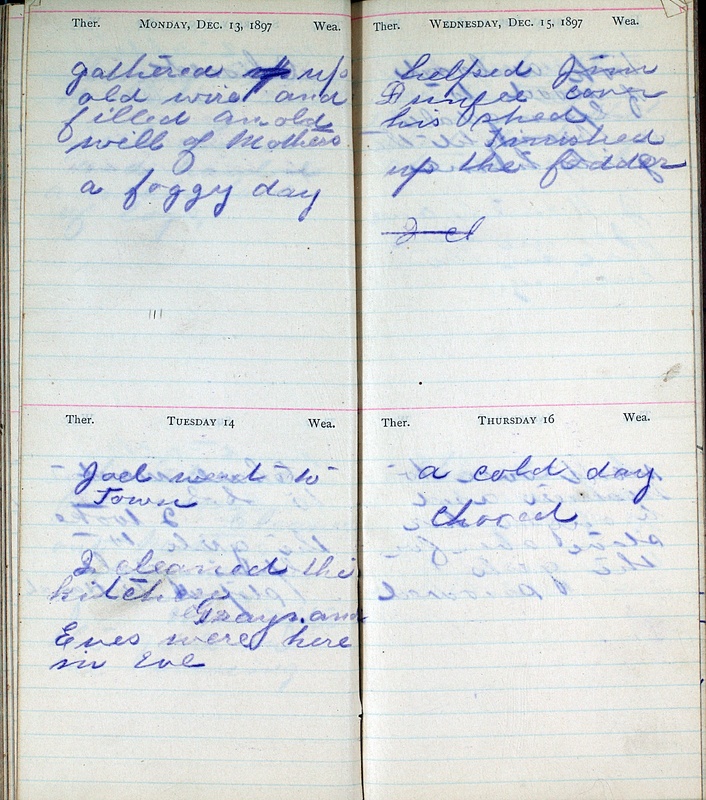 Ther. MONDAY, DEC. 13, 1897 Wea.
gathered up
old wire and
filled an old
well of Mothers
a foggy day
Ther. TUESDAY 14 Wea.
Joel went to
Town
I cleaned the
kitchen
Grays and
Eves were here
in Eve
Ther. WEDNESDAY, DEC. 15, 1897 Wea.
helped Jim
cover
his shed
Finished
up the fodder
Ther. THURSDAY 16 Wea.
a cold day
Chored